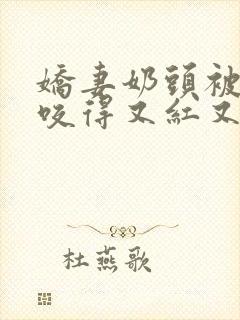 嬌妻奶頭被
咬得又紅又
杜燕歌